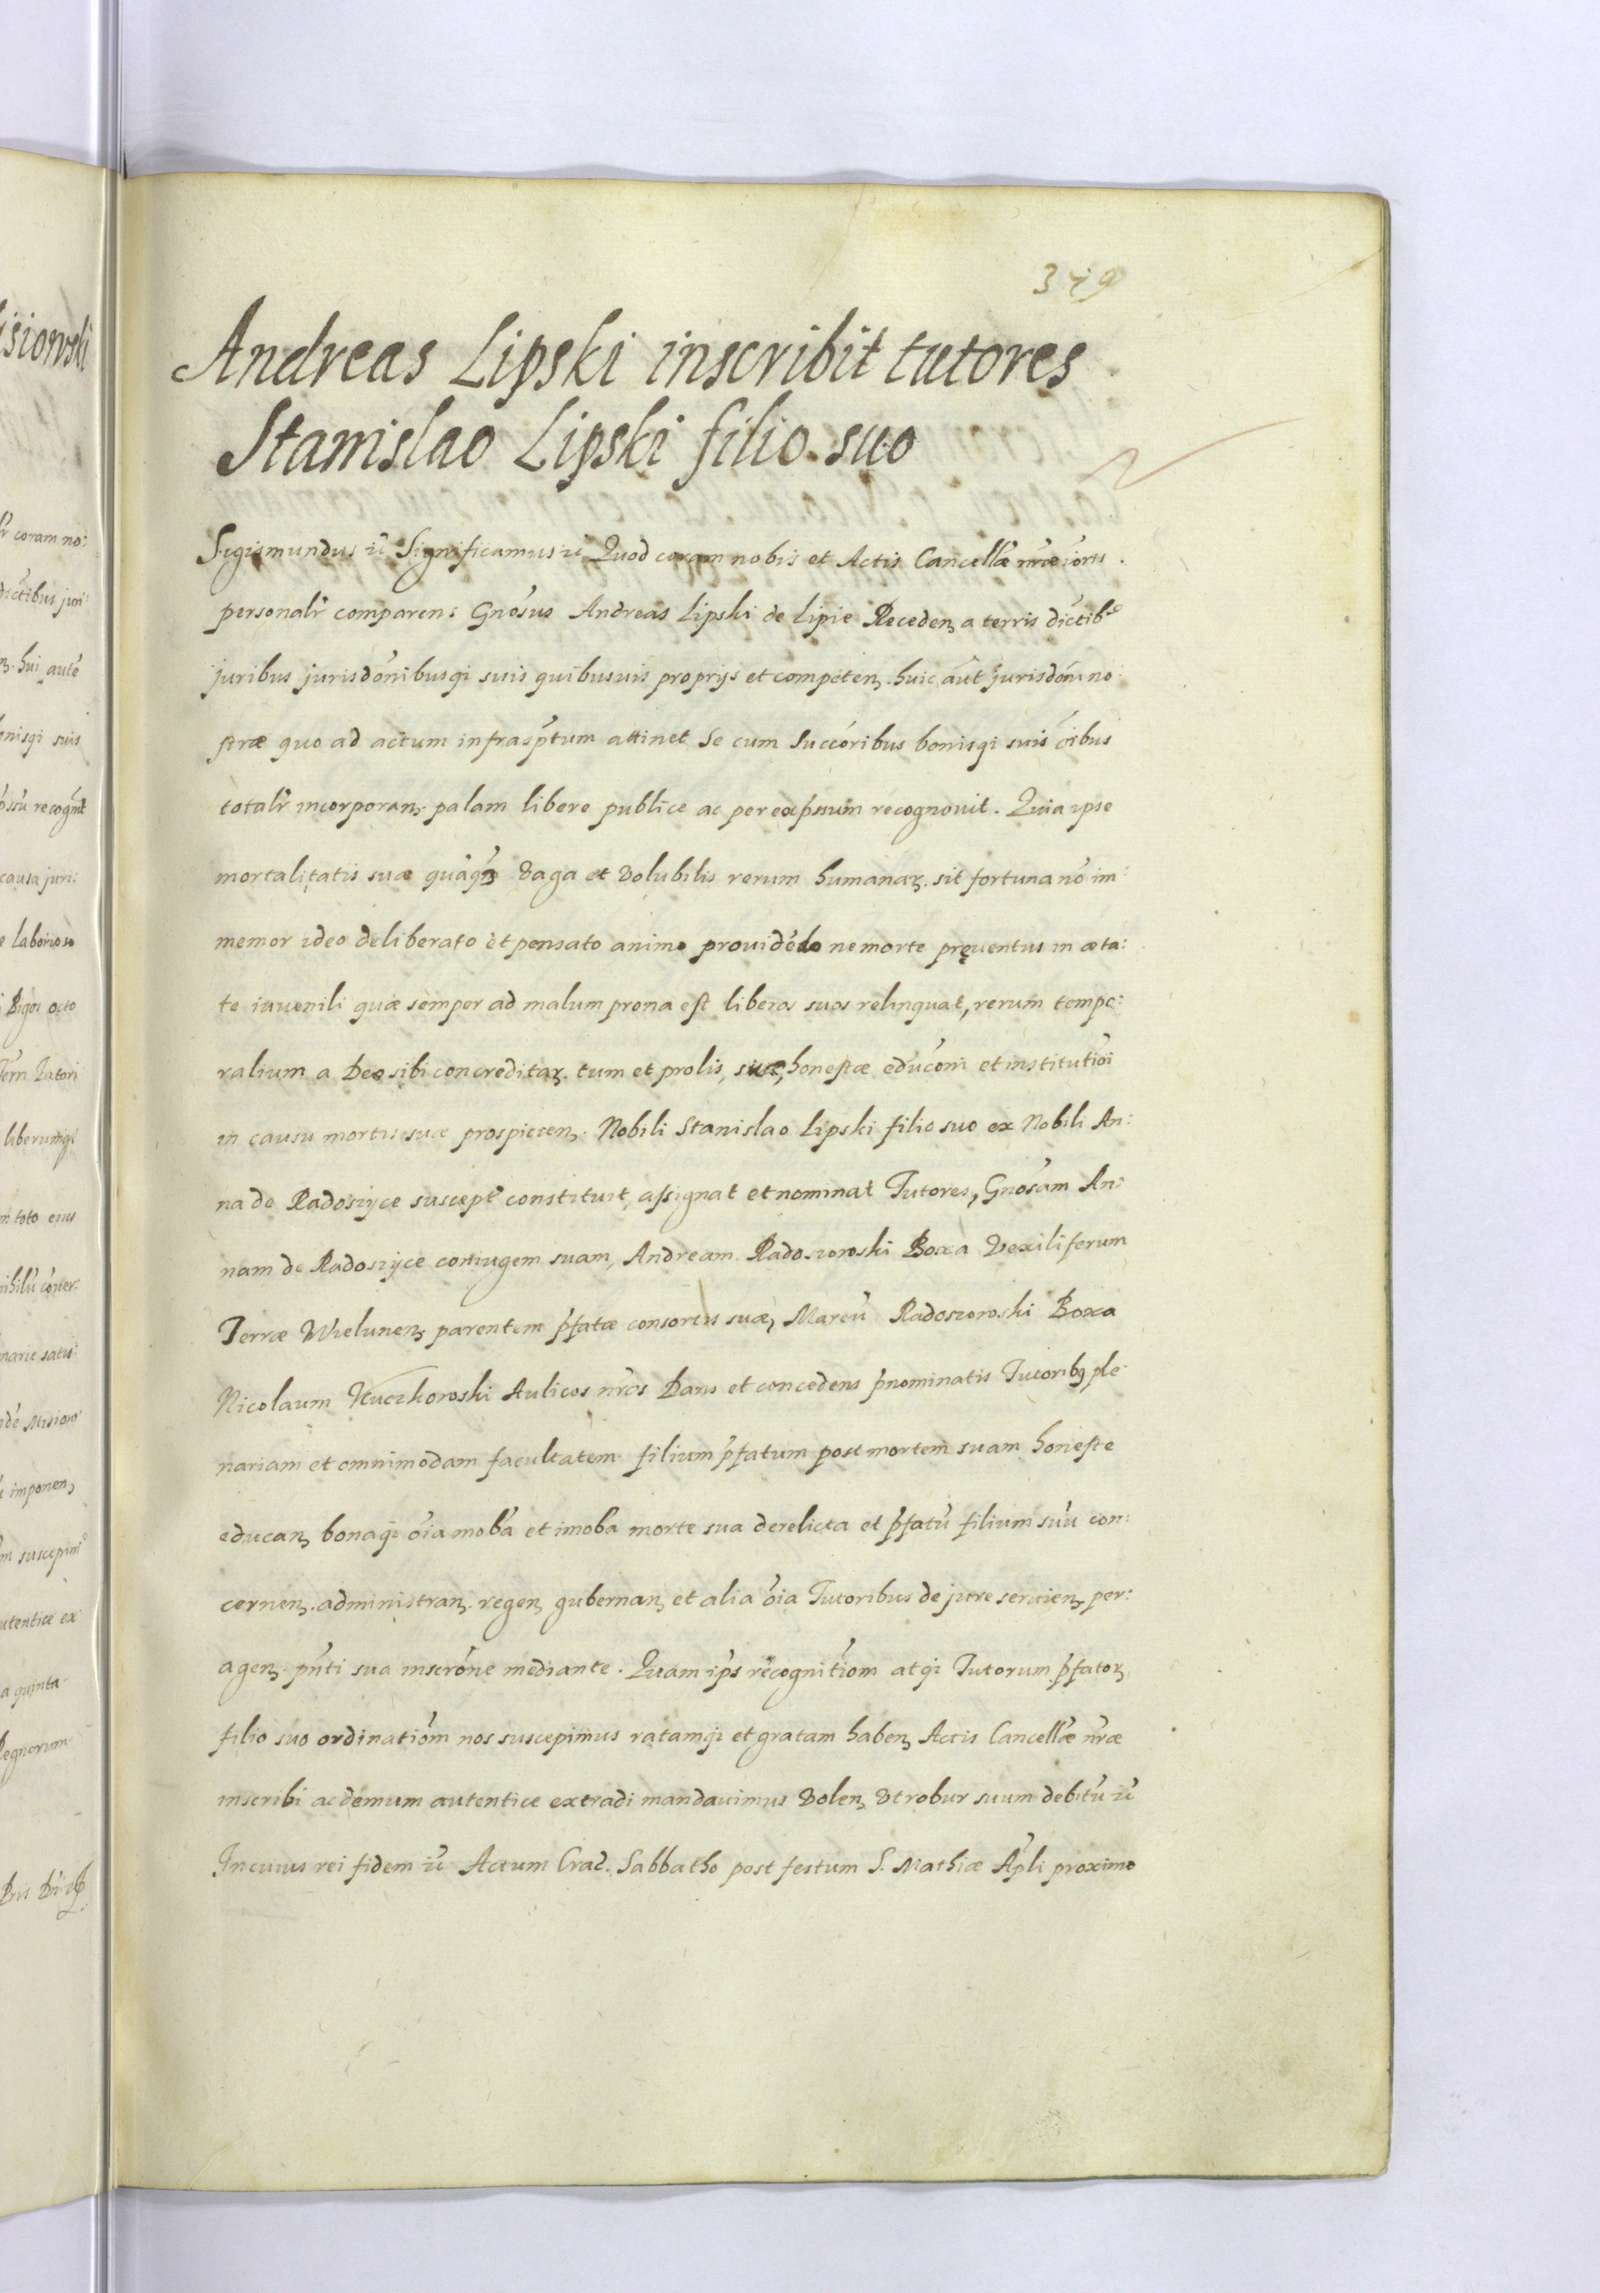 349
Andreas Lipski inscribit tutores
Stanislao Lipski filio suo
Sigismundus etc̃ Significamus etc̃ Quod coram nobis et Actis Cancellæ nr̃æ
personalr̃ comparens Gnõsus Andreas Lipski de Lipie Receden. a terris dictib9
juribus jurisdõnibusq̃ suis quibusuis proprijs et competen. huic aũt jurisdõni no:
stræ quo ad actum infrasp̃tum attinet se cum succõribus bonisq̃ suis õibus
totalr̃ incorporan. palam libere publice ac per exp̃ssum recognouit. Quia ipse
mortalitatis suæ quãq3 vaga et volubilis rerum humanaꝝ sit fortuna nõ im:
memor ideo deliberato et pensato animo prouidẽdo ne morte pręuentus in æta:
te iuuenili quæ semper ad malum prona est liberos suos relinquat, rerum tempo:
ralium a Deo sibi concreditaꝝ tum et prolis suæ, honestæ educõni et institutiõi
in causu mortis suæ prospicien. Nobili Stanislao Lipski filio suo ex Nobili An:
na de Radoszyce suscept̃ constituit, assignat et nominat Tutores, Gnõsam An:
nam de Radoszyce coniugem suam, Andream Radoszowski Boxa Vexiliferum
Terræ Wielunen. parentem p̃fatæ consortis suæ, Marcũ Radoszowski Boxa
Nicolaum Kuczkowski Aulicos nr̃os Dans et concedens p̃nominatis Tutorib9 ple:
nariam et omnimodam facultatem filium p̃fatum post mortem suam honeste
educan. bonaq̃ õia mobã et imoba morte sua derelicta et p̃fatũ filium suũ con:
cernen. administran. regen. gubernan. et alia õia Tutoribus de jure seruien. per:
agen. p̃nti sua inscrõne mediante. Quam ip̃s recognitiõm atq̃ Tutorum p̃fatoꝝ
filio suo ordinatiõm nos suscepimus ratamq̃ et gratam haben. Actis Cancellæ nr̃æ
inscribi ac demum autentice extradi mandauimus volen. vt robur suum debitũ etc̃
In cuius rei fidem etc̃ Actum Crac̃. Sabbatho post festum S. Mathiæ Ap̃li proximo